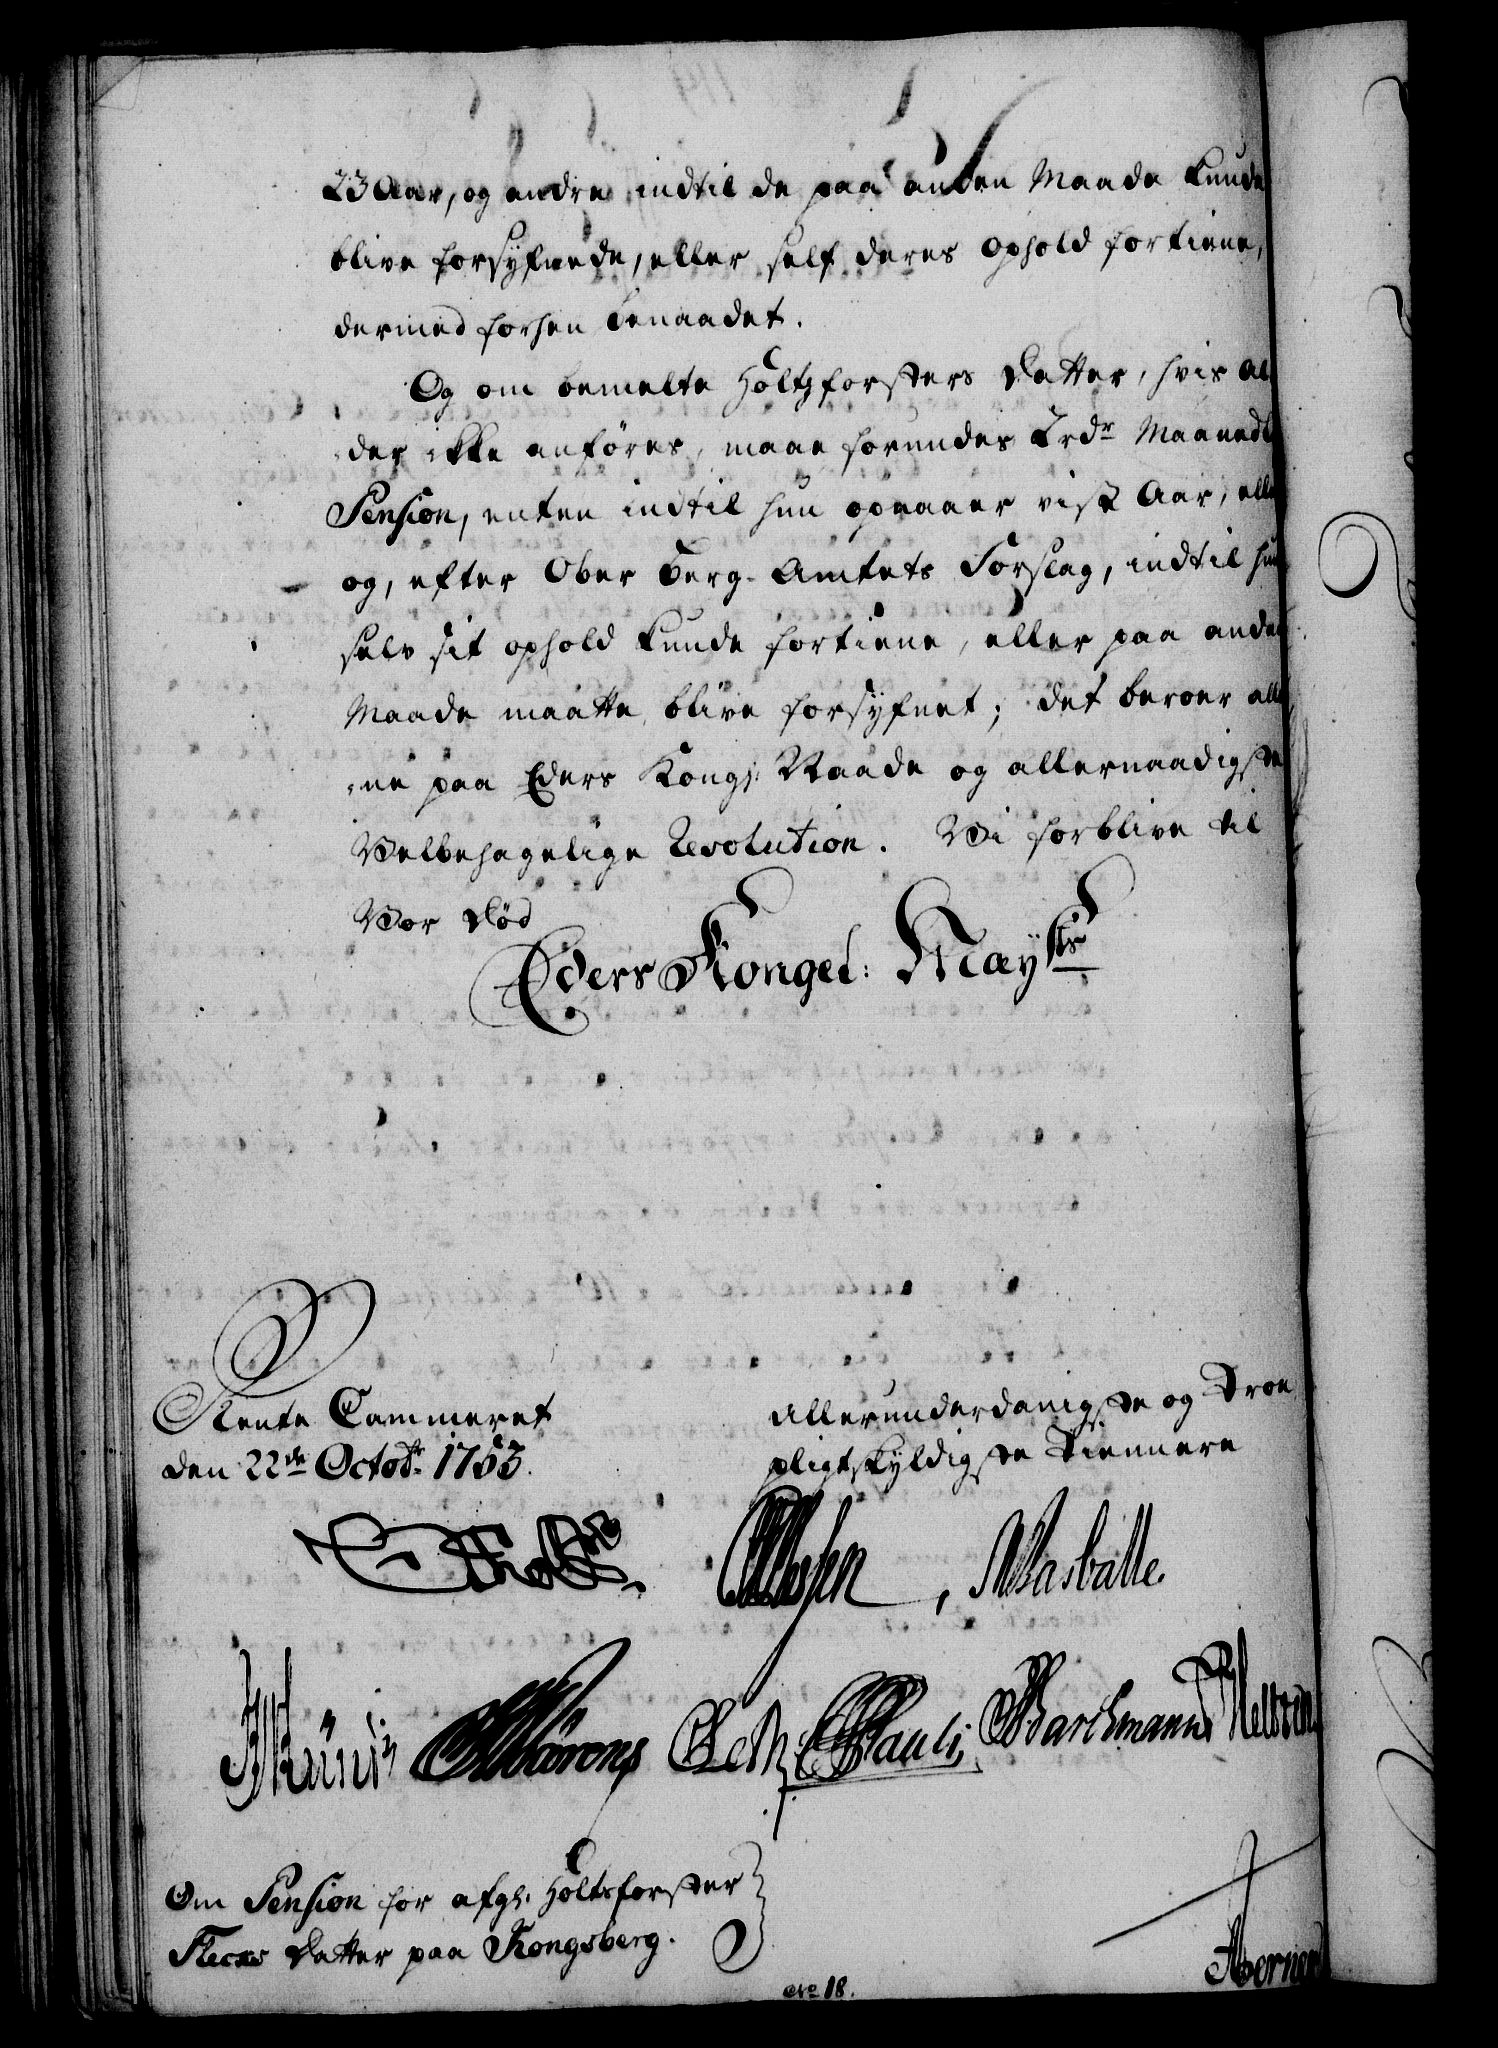 23 Aar, og andre indtil de paa anden Maade kunde
blive forsÿfnede, eller self deres Ophold fortiene,
dermed forhen benaadet.
Og om bemelte Holtzforsters Datter, hvis Al
der ikke anföres, maae forundes 2 rdr Maanedl
Pension, enten indtil hun opnaaer visse Aar, elle
og, efter Ober Berg-Amtets Forslag, indtil hun
selv sit ophold kunde fortiene, eller paa anden
Maade maatte blive forsÿfnet; det beroer alle
ne paa Eders Kongl: Naade og allernaadigste
Velbehagelige Resolution. Vi forblive til
Vor Død
Eders Kongel: Mayts
Rente Cammeret
den 22de Octobr: 1753.
Allerunderdanigste og Troe
pligtskÿldigste Tiennere
Holtzforster
Om Pension for afg: Holtzforster
Flecks Datter paa Kongsberg.
No 18.